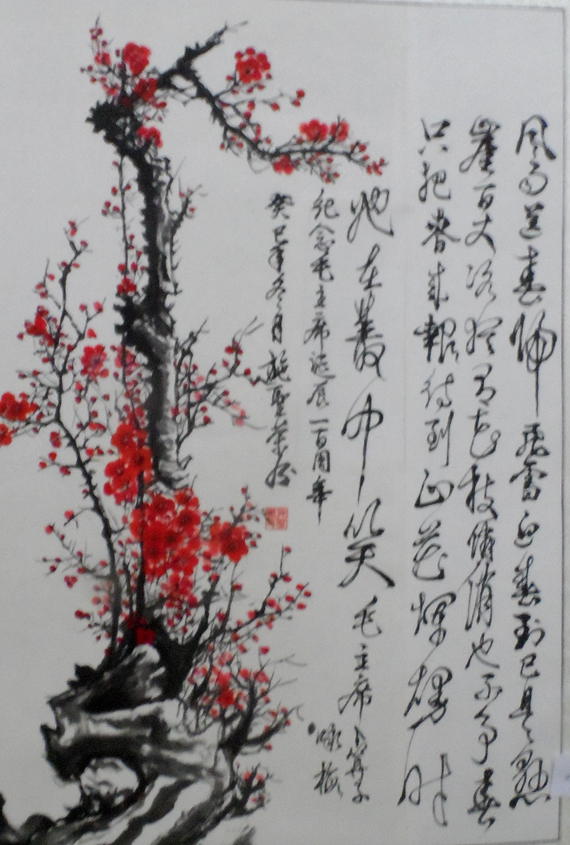 风雨送春归飛雪迎春到已是悬
崖百丈冰犹有花枝俏俏也不争春
只把春来报待到山花烂熳时
她在叢中笑 毛主席卜算子
咏梅
纪念毛主席诞辰一百周年
癸巳年冬月